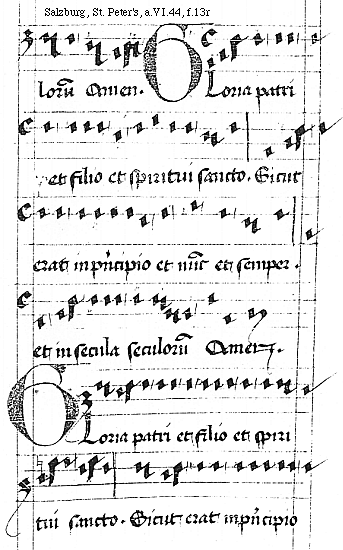 Salzburg, St. Peter's, a.VI.44, f.13r
lorū Amen. Gloria patri
et filio et spiritui sancto. Sicut
erat in pñcipio et nūc et semper.
et in secula seculorū Amen.
Gloria patri et filio et spiri
tui sancto. Sicut erat in pñcipio